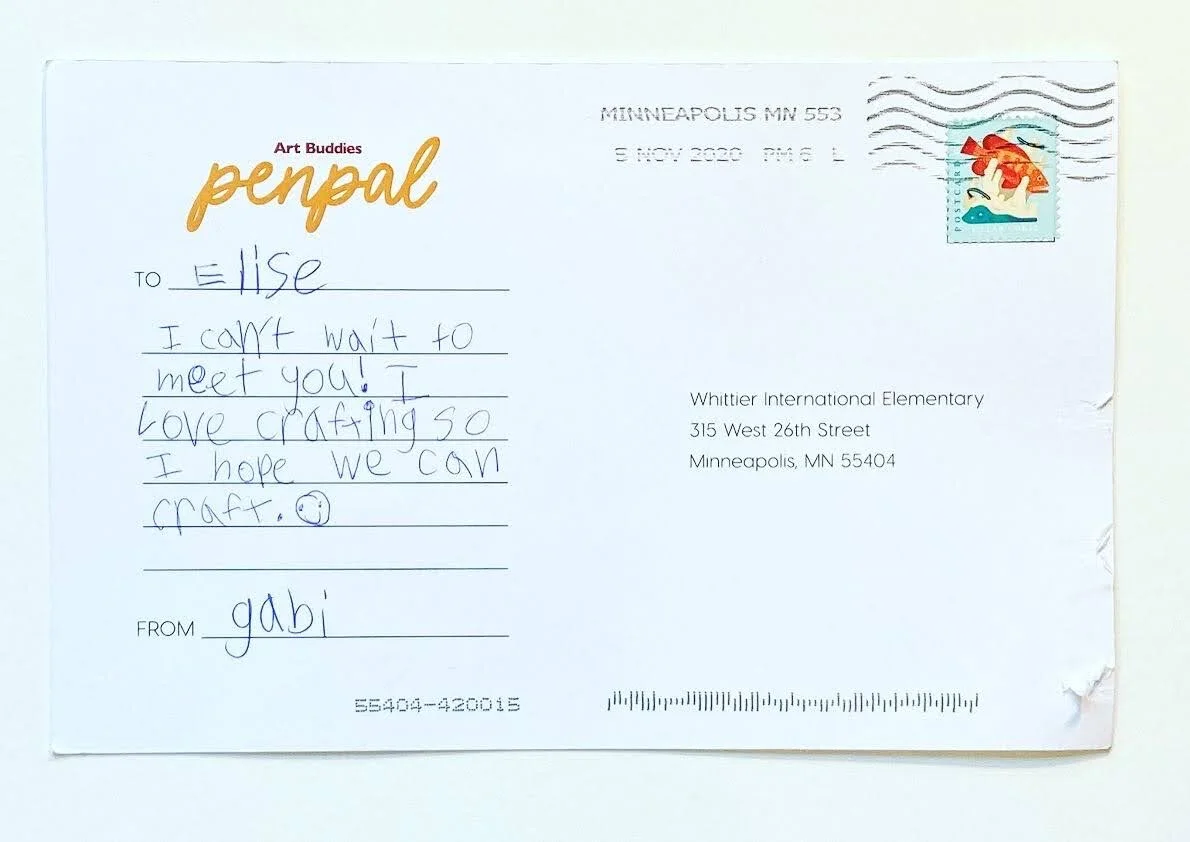 Art Buddies
penpal
TO Elise
I can't wait to
meet you! I
Love crafting so
I hope we can
craft.
FROM gabi
55404-420015
MINNEAPOLIS MN 553
5 NOV 2020 PM 6 L
POSTCARD
Whittier International Elementary
315 West 26th Street
Minneapolis, MN 55404